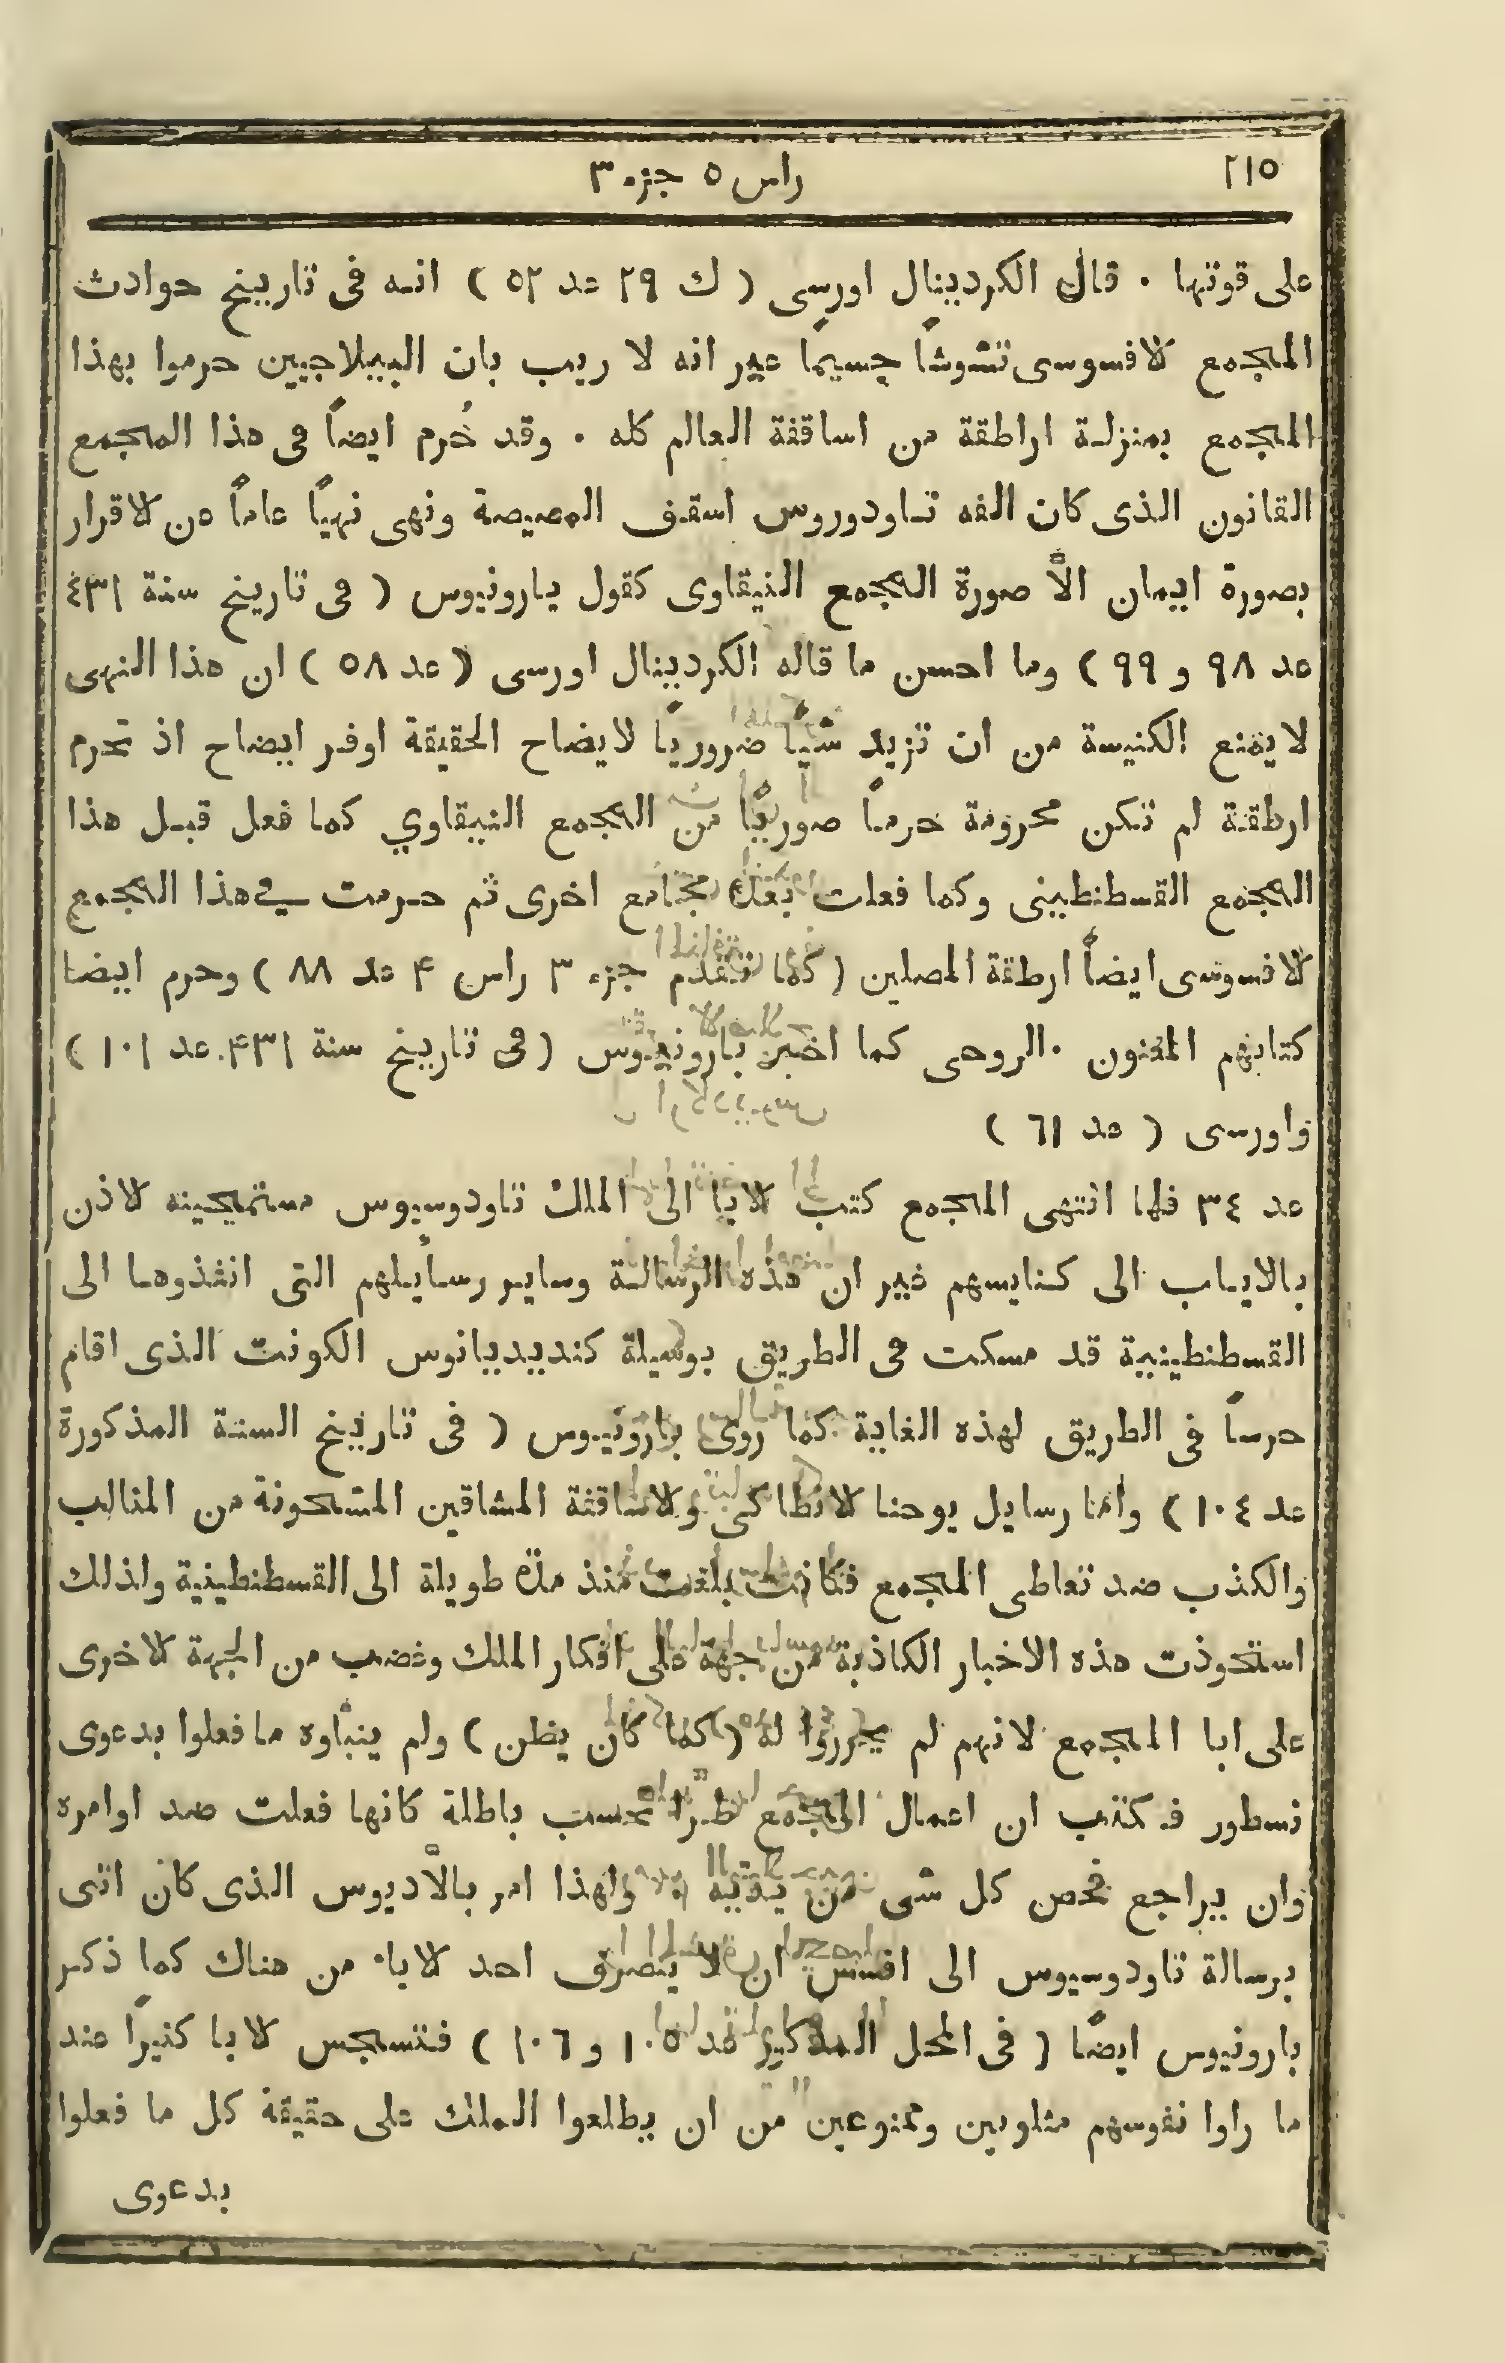 ٢١٥
راس ٥ جزء ٣
على قوتها ٠ قال الكردينال اورسى ( ك ٢٩ عد ٥٢ ) انه فى تاريخ حوادث
المجمع الافسوسى تشوشًا جسيمًا غير انه لا ريب بان البيلاجيين حرموا بهذا
المجمع بمنزلة اراطقة من اساقفة العالم كله ٠ وقد حُرم ايضاً فى هذا المجمع
القانون الذى كان الفه تاودوروس اسقف المصيصة ونهى نهيًا عاماً عن الاقرار
بصورة ايمان الاّ صورة المجمع النيقاوى كقول بارونيوس ( فى تاريخ سنة ٤٣١
عد ٩٨ و ٩٩ ) وما احسن ما قاله الكردينال اورسى ( عد ٥٨ ) ان هذا النهى
لا يمنع الكنيسة من ان تزيد شيًا ضروريًا لايضاح الحقيقة اوفر ايضاح اذ تحرم
ارطقة لم تكن محرومة حرمًا صوريًا من المجمع النيقاوي كما فعل قبل هذا
المجمع القسطنطينى وكما فعلت بعدُ مجامع اخرى ثم حرمت في هذا المجمع
الافسوسى ايضاً ارطقة المصلين ( كما تقدم جزء ٣ راس ۴ عد ٨٨ ) وحرم ايضا
كتابهم المعنون الروحى كما اخبر بارونيوس ( فى تاريخ سنة ۴٣١ عد ١٠١ )
واورسى ( عد ٦١ )
عد ٣٤ فلما انتهى المجمع كتب الابا الى الملك تاودوسيوس مستميحينه الاذن
بالاياب الى كنايسهم غير ان هذه الرسالة وساير رسايلهم التى انفذوها الى
القسطنطينية قد مسكت فى الطريق بوسيلة كنديديانوس الكونت الذى اقام
حرساً فى الطريق لهذه الغاية كما روى بارونيوس ( فى تاريخ السنة المذكورة
عد ١٠٤ ) واما رسايل يوحنا الانطاكى والاساقفة المشاقين المشحونة من المثالب
والكذب ضد تعاطى المجمع فكانت بلغت منذ مدة طويلة الى القسطنطينية ولذلك
استحوذت هذه الاخبار الكاذبة من جهة على افكار الملك وغضب من الجهة الاخرى
على ابا المجمع لانهم لم يحرروا له ( كما كان يظن ) ولم ينباوه ما فعلوا بدعوى
نسطور فكتب ان اعمال المجمع طرًا تحسب باطلة كانها فعلت ضد اوامره
وان يراجع فحص كل شى من يديه ولهذا امر بالاّديوس الذى كان اتى
برسالة تاودوسيوس الى افسس ان لا ينصرف احد الابا من هناك كما ذكر
بارونيوس ايضًا ( فى المحل المذكور عد ١٠٥ و ١٠٦ ) فتسجس الابا كثيرًا عند
ما راوا نفوسهم مثلوبين وممنوعين من ان يطلعوا الملك على حقيقة كل ما فعلوا
بدعوى